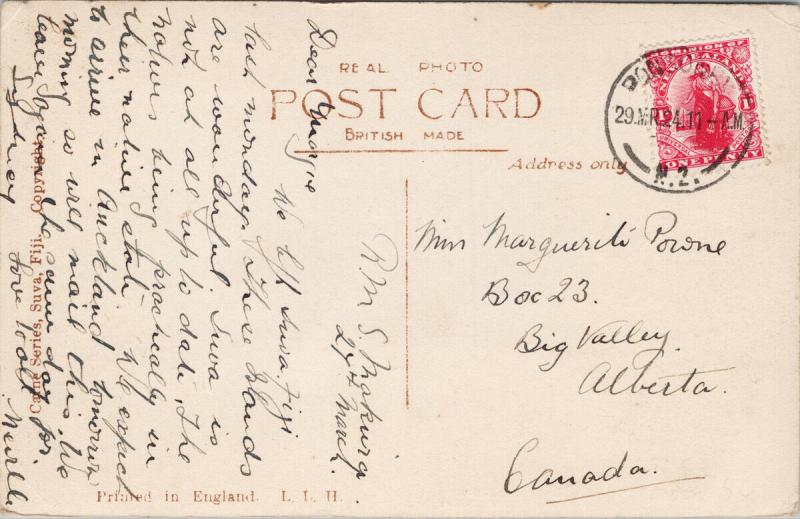 REAL PHOTO
POST CARD
BRITISH MADE
Address only
DOMINION OF
NEW ZEALAND
UNIVERSAL
ONE PENNY
29.MR.24.11-AM
N.Z.
Miss Marguerite Powne
Box 23.
Big Valley.
Alberta.
Canada.
R.M.S. Makura
27th March.
Dear Margie
We left Suva Fiji
last monday. These Islands
are wonderful. Suva is
not at all up to date, the
natives being practically in
their native state. We expect
to arrive in Auckland tomorrow
morning so will mail this. We
leave again the same day for
Sydney
Love to all
Caine Series, Suva, Fiji. COPYRIGHT
Printed in England. L. L. H.